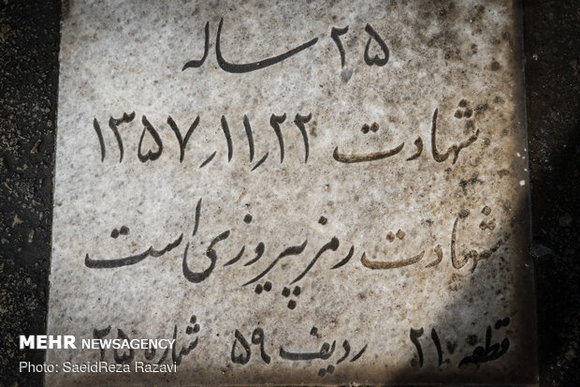 ۲۵ ساله
شهادت ۱۳۵۷٫۱۱٫۲۲
شهادت رمز پیروزی است
قطعه ۲۱ ردیف ۵۹ شماره ۲۵
MEHR NEWSAGENCY
Photo: SaeidReza Razavi